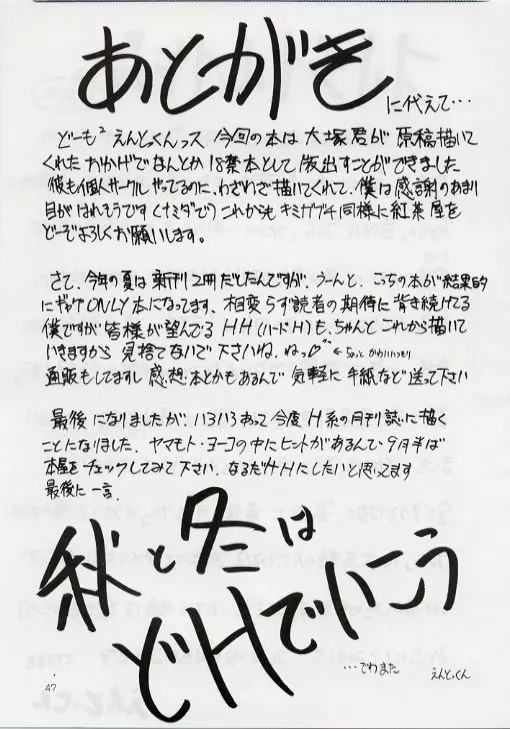 あとがき
に代えて…
どーも² えんどっくんっス 今回の本は 大塚君が 原稿描いて
くれたおかげでなんとか 楽本として 版出すことができました
彼も個人サークル やってるのに、わざわざ描いてくれて、僕は感謝のあまり
目がはれそうです(ナミダで) これからも キミガブチ同様に紅茶屋を
どーぞよろしくお願いします。
さて、今年の夏は 新刊2冊だしたんですが、うーんと、こっちの本が結果的
にギャグONLY本になってます、相変らず読者の期待に背き続けてる
僕ですが 皆様が望んでる HH(ハードH)も、ちゃんとこれから描いて
いきますから 見捨てないで下さいね、ねっ♡ ←ちょっとかわいいっつり
通販もしてますし 感・想・本とかもあるんで 気軽に 手紙など送って下さい
最後になりましたが、いろいろあって今度H系の月刊誌に描く
ことになりました、ヤマモト・ヨーコの中にヒントがあるんで・9月半ば
本屋をチェックしてみて下さい、なるだけHにしたいと思ってます
最後に一言、
秋と冬は
どHでいこう
…でわまた
えんどっくん
47